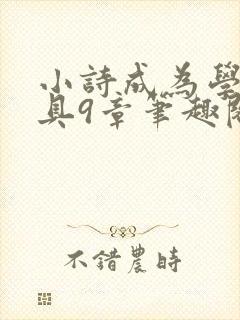 小詩成為學
具9章筆趣閣
不錯農時